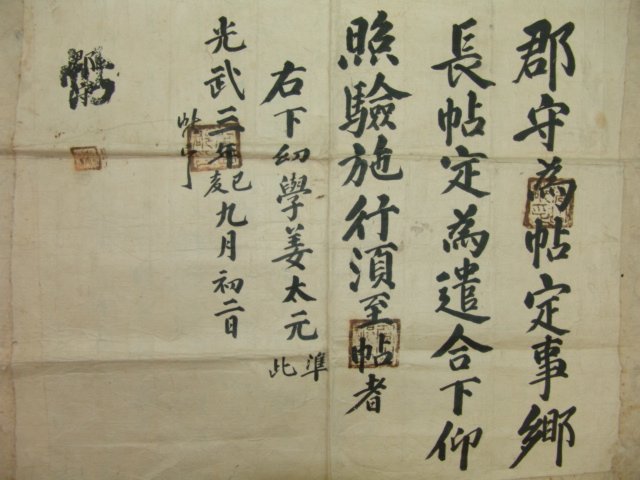 郡守為帖定事鄉
長帖定為遣合下仰
照驗施行須至帖者
右下幼學姜太元 準此
光武三年己亥九月初二日
帖
郡守